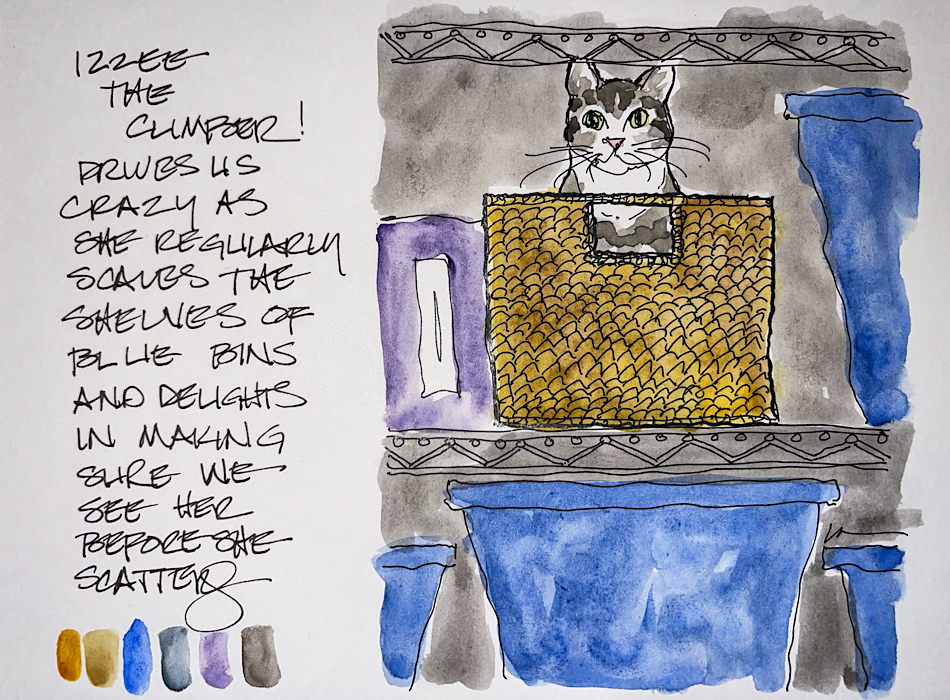 IZZEE
THE
CLIMBER!
DRIVES US
CRAZY AS
SHE REGULARLY
SCALES THE
SHELVES OF
BLUE BINS
AND DELIGHTS
IN MAKING
SURE WE
SEE HER
BEFORE SHE
SCATTERS